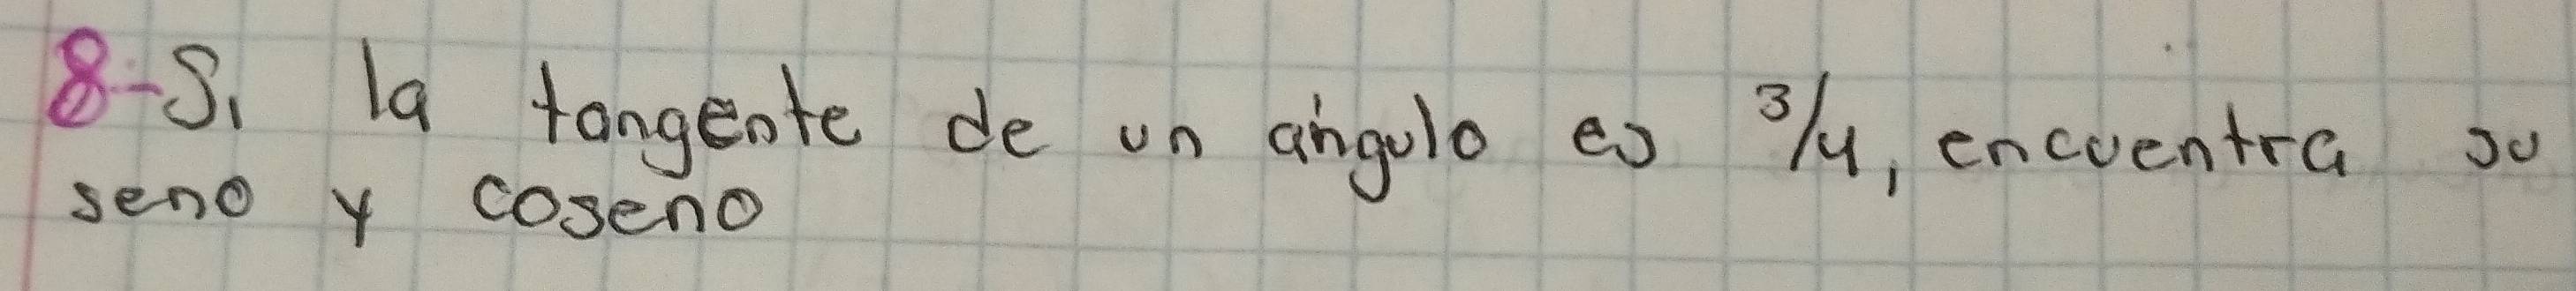 8-Si la tangente de un ángulo es 3/4, encuentra su
seno y coseno